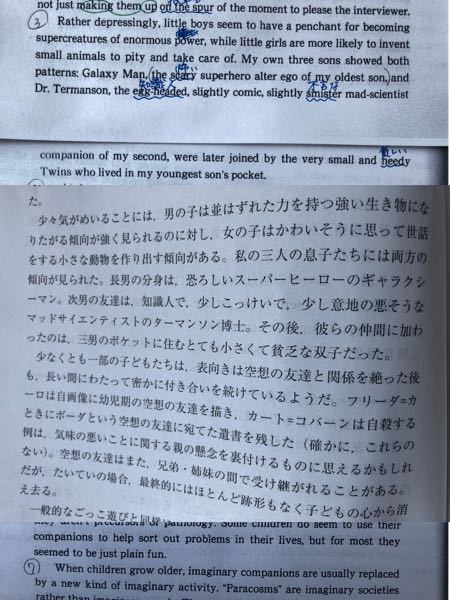 not just making them up on the spur of the moment to please the interviewer.
③ Rather depressingly, little boys seem to have a penchant for becoming
supercreatures of enormous power, while little girls are more likely to invent
small animals to pity and take care of. My own three sons showed both
patterns: Galaxy Man, (the scary superhero alter ego of my oldest son,) and
Dr. Termanson, the egg-headed, slightly comic, slightly sinister mad-scientist
貧しい
companion of my second, were later joined by the very small and needy
Twins who lived in my youngest son's pocket.
た。
少々気がめいることには，男の子は並はずれた力を持つ強い生き物にな
りたがる傾向が強く見られるのに対し，女の子はかわいそうに思って世話
をする小さな動物を作り出す傾向がある。私の三人の息子たちには両方の
傾向が見られた。長男の分身は，恐ろしいスーパーヒーローのギャラクシ
ーマン。次男の友達は，知識人で，少しこっけいで，少し意地の悪そうな
マッドサイエンティストのターマンソン博士。その後，彼らの仲間に加わ
ったのは，三男のポケットに住むとても小さくて貧乏な双子だった。
少なくとも一部の子どもたちは，表向きは空想の友達と関係を絶った後
も，長い間にわたって密かに付き合いを続けているようだ。フリーダ=カ
ーロは自画像に幼児期の空想の友達を描き，カート=コバーンは自殺する
ときにボーダという空想の友達に宛てた遺書を残した（確かに，これらの
例は，気味の悪いことに関する親の懸念を裏付けるものに思えるかもしれ
ない）。空想の友達はまた，兄弟・姉妹の間で受け継がれることがある。
だが，たいていの場合，最終的にはほとんど跡形もなく子どもの心から消
え去る。
一般的なごっこ遊びと同様
they aren't precursors of pathology. Some children do seem to use their
companions to help sort out problems in their lives, but for most they
seemed to be just plain fun.
⑦ When children grow older, imaginary companions are usually replaced
by a new kind of imaginary activity. "Paracosms" are imaginary societies
rather than